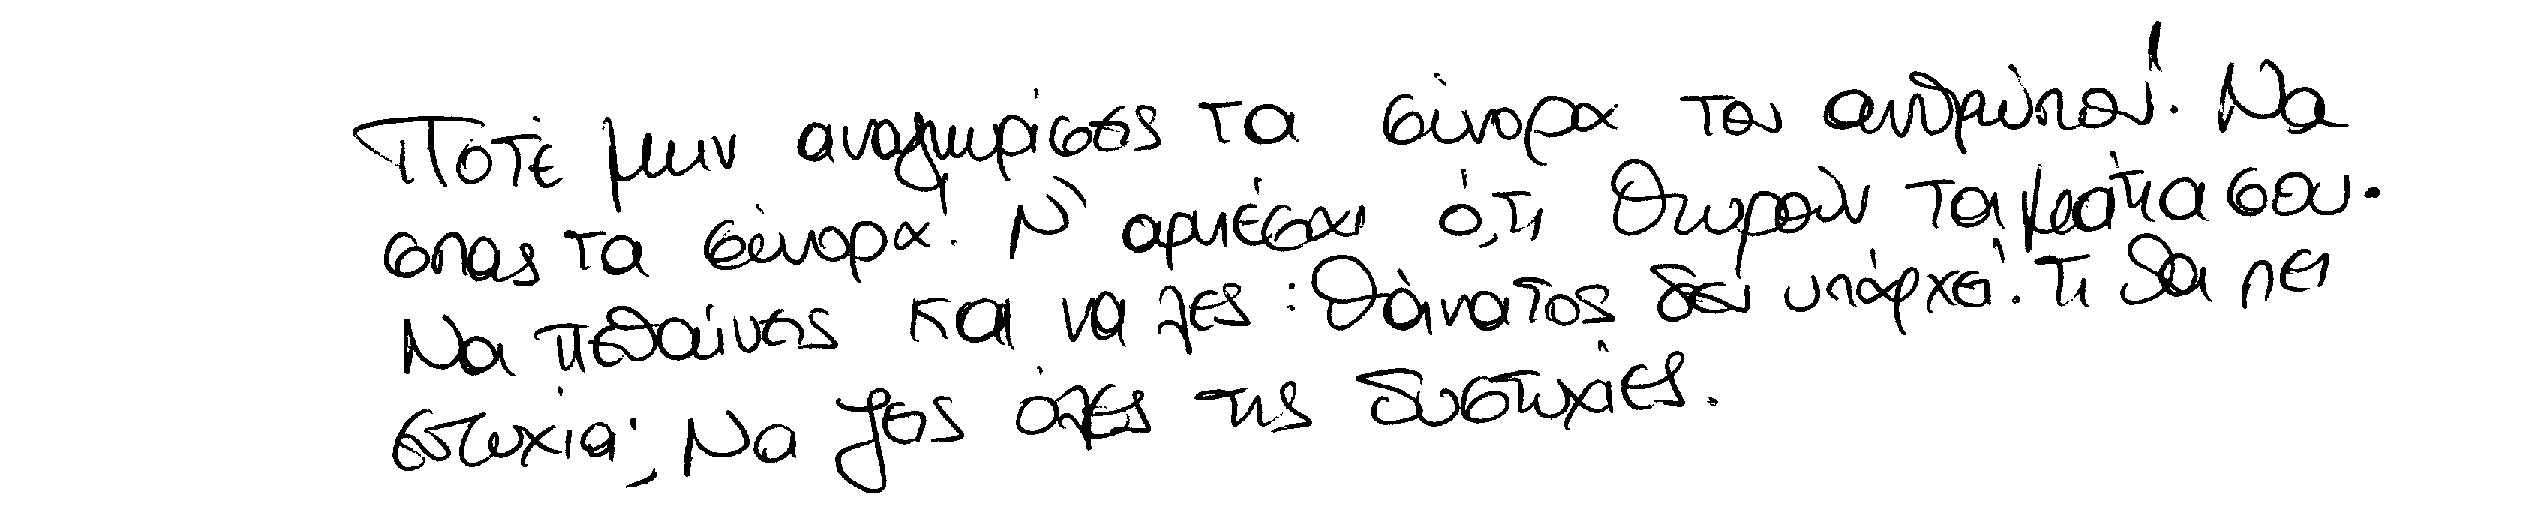 Ποτέ μην αναγνωρίσεις τα σύνορα του ανθρώπου! Να
σπας τα σύνορα! Ν' αρνιέσαι ό,τι θωρούν τα μάτια σου.
Να πεθαίνεις και να λες: Θάνατος δεν υπάρχει. Τι θα πει
ευτυχία; Να ζεις όλες τις δυστυχίες.